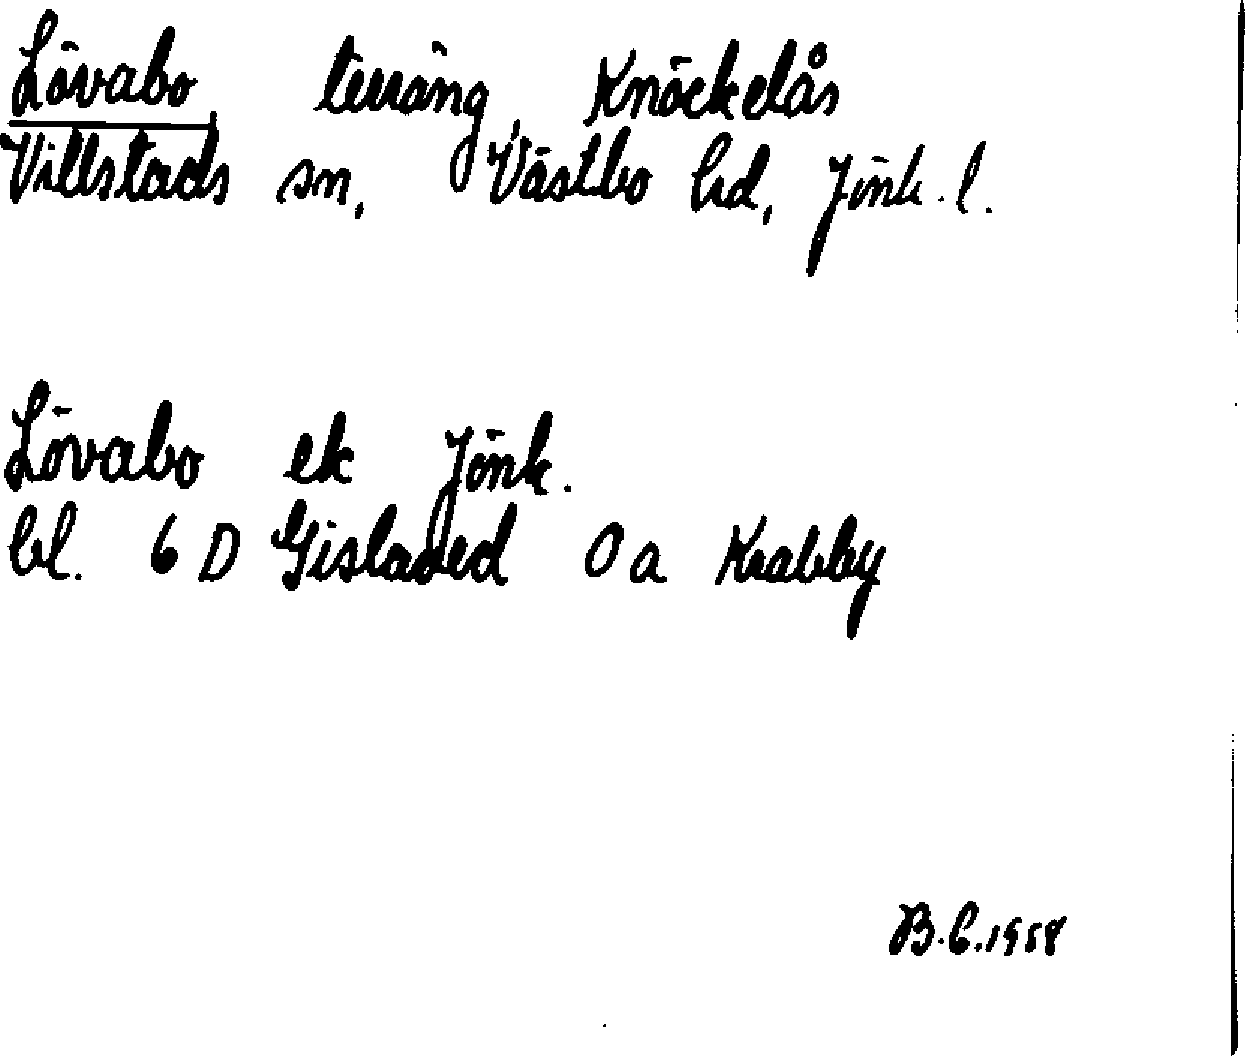 Lövabo, terräng, Knäckelås
Villstads sn, Västbo hd, Jönk. l.
Lövabo ek Jönk.
bl. 6 D Gislaved 0 a Krabby
B.C. 1958